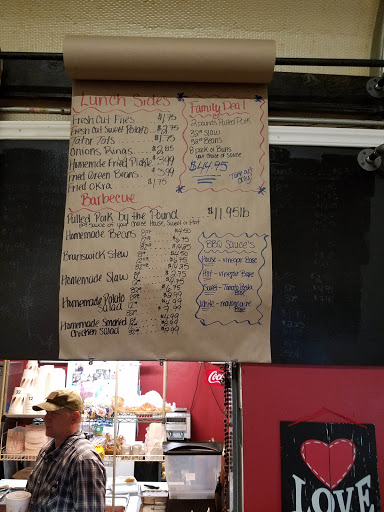 Lunch Sides
Fresh Cut Fries $1.75
Fresh Cut Sweet Potato $2.75
Tator Tots $1.75
Onions Rings $2.85
Homemade Fried Pickle $3.99
Fried Green Beans $3.99
Fried Okra $1.75
Family Deal
2 pounds Pulled Pork
32oz Slaw
32oz Beans
8 pack of Buns
your choice of sauce
$44.95
Take out
only
Barbecue
Pulled Pork by the Pound $11.95lb
your choice of House, Sweet or Hot
Homemade Beans
Brunswick Stew
Homemade Slaw
Homemade Potato
Salad
Homemade Smoked
Chicken Salad
BBQ Sauce's
House - vinegar Base
Hot - vinegar Base
Sweet - Tomato Based
White - mayonnaise
Base
Coca
LOVE